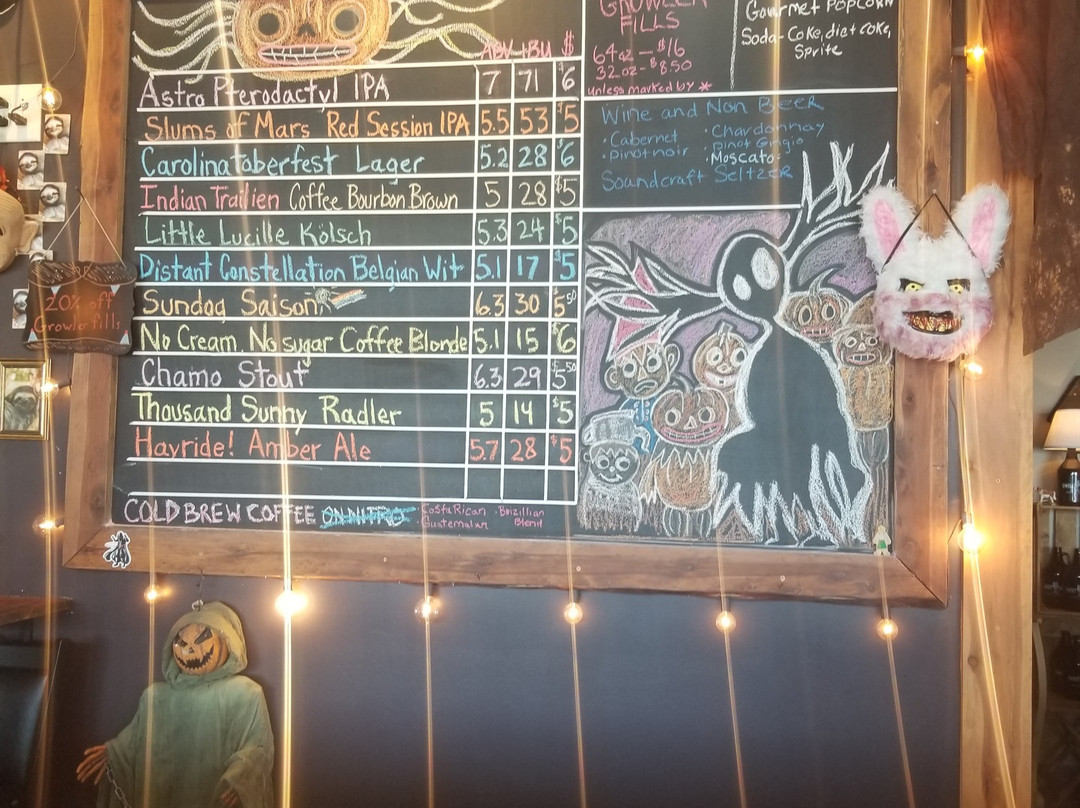 ABV IBU $
Astro Pterodactyl IPA 7 71 $6
Slums of Mars Red Session IPA 5.5 53 $5
Carolinatoberfest Lager 5.2 28 $6
Indian Trailien Coffee Bourbon Brown 5 28 $5
Little Lucille Kölsch 5.3 24 $5
Distant Constellation Belgian Wit 5.1 17 $5
Sundog Saison 6.3 30 $5.50
No Cream, No sugar Coffee Blonde 5.1 15 $6
Chamo Stout 6.3 29 $5.50
Thousand Sunny Radler 5 14 $5
Hayride! Amber Ale 5.7 28 $5
COLD BREW COFFEE ON NITRO
· Costa Rican · Brizillian
· Guatemalan Blend
GROWLER
FILLS
64oz - $16
32oz - $8.50
unless marked by *
Gourmet Popcorn
Soda - Coke, diet coke,
Sprite
Wine and Non Beer
· Cabernet · Chardonnay
· Pinot noir · Pinot Grigio
· Moscato
Soundcraft Seltzer
20% off
Growler fills